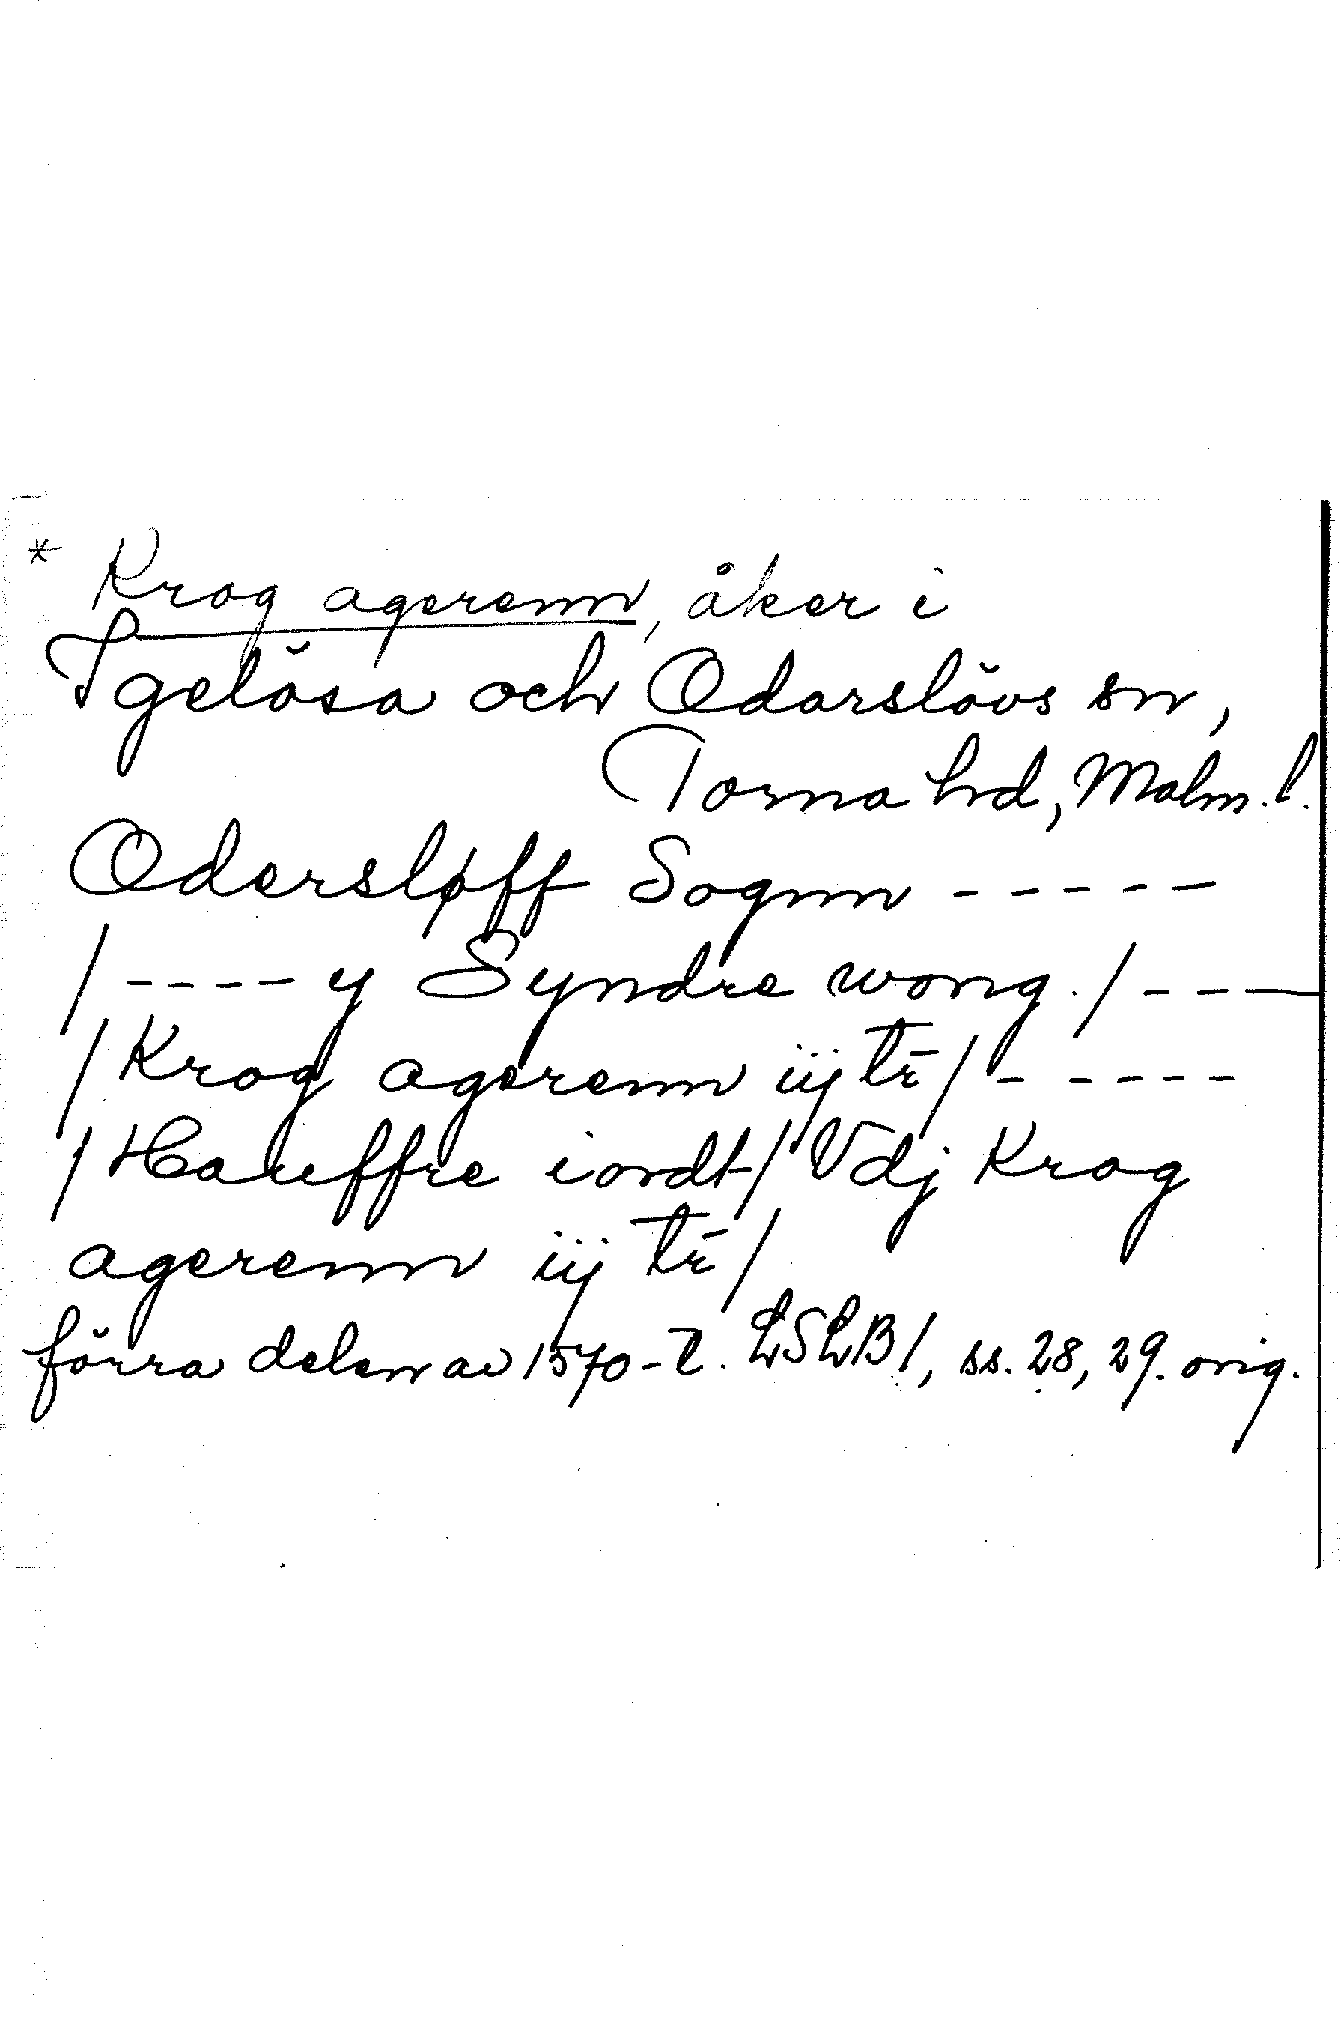 * Krog agerenn, åker i
Igelösa och Odarslövs sn,
Torna hd, Malm. l.
Odersløff Sognn - - - - -
/ - - - - y Syndre wong. / - - -
/ Krog agerenn iij tr̄ / - - - - -
/ Hauffre iordt / Vdj Krog
agerenn iij tr̄ /
förra delen av 1570-t. LSLB 1, ss. 28, 29. orig.